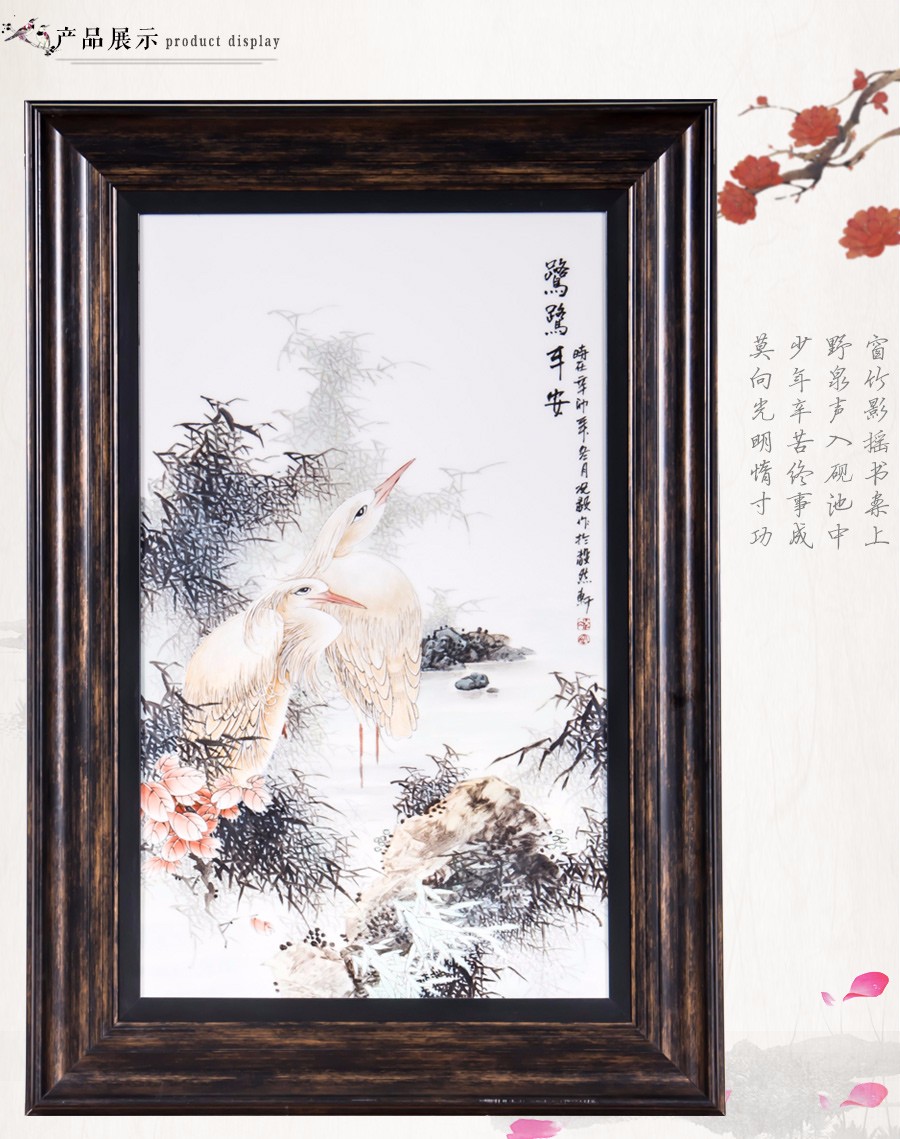 产品展示 product display
鷺鷺平安
時在辛卯年冬月况毅作於毅然軒
窗竹影摇书桌上
野泉声入砚池中
少年辛苦终事成
莫向光明惰寸功